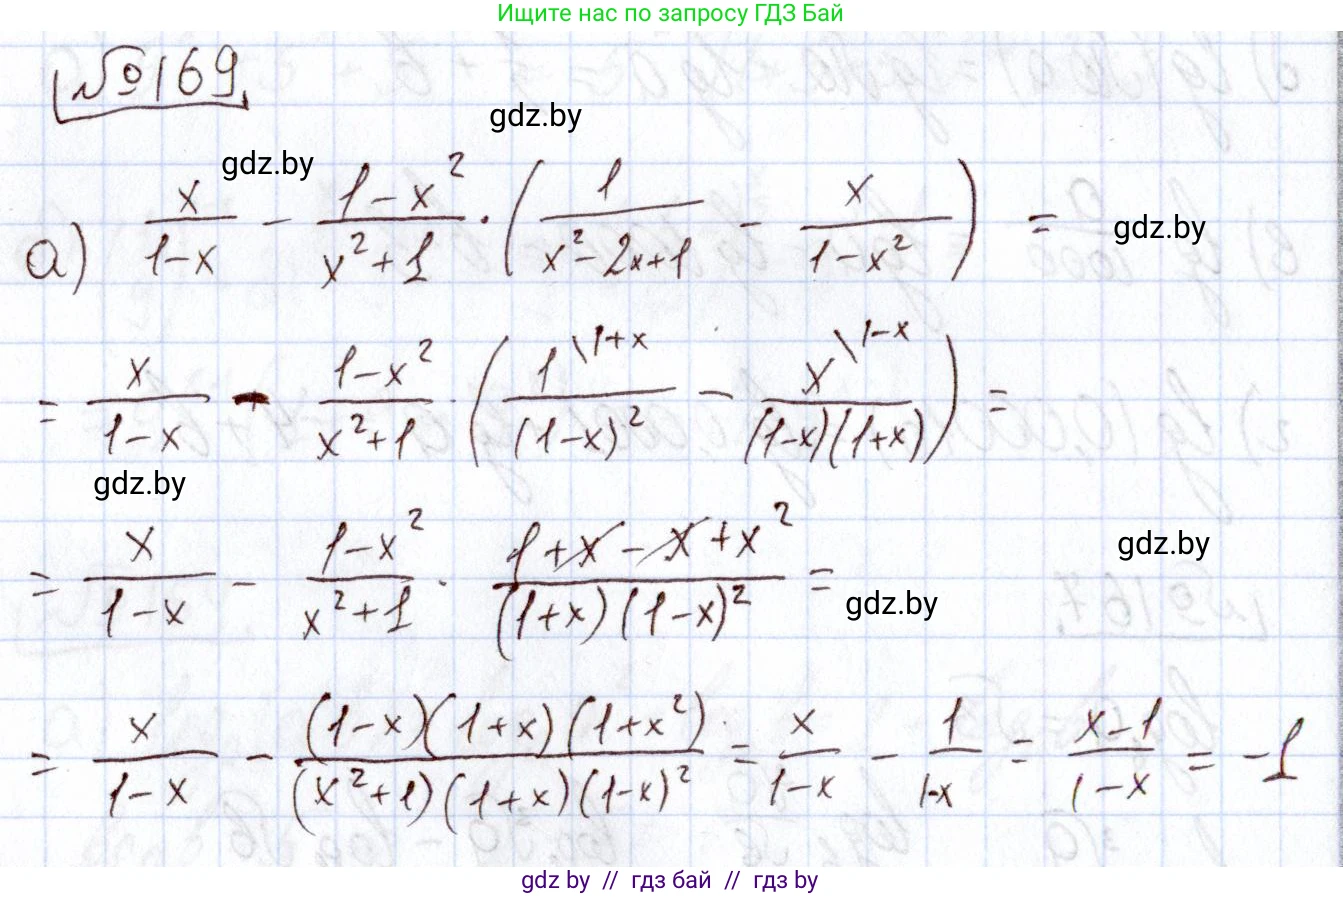 Ищите нас по запросу ГДЗ Бай
№169
gdz.by
gdz.by
а) x/(1-x) - (1-x²)/(x²+1) · (1/(x²-2x+1) - x/(1-x²)) =
gdz.by
= x/(1-x) - (1-x²)/(x²+1) · (1\1+x/(1-x)² - x\1-x/((1-x)(1+x))) =
gdz.by
= x/(1-x) - (1-x²)/(x²+1) · (1+x-x+x²)/((1+x)(1-x)²) =
gdz.by
gdz.by
= x/(1-x) - ((1-x)(1+x)(1+x²))/((x²+1)(1+x)(1-x)²) = x/(1-x) - 1/(1-x) = (x-1)/(1-x) = -1
gdz by // гдз бай // гдз by